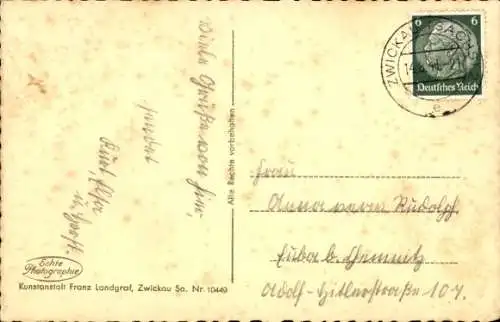 6 6
Deutsches Reich
ZWICKAU (SACHS)
e
Viele Grüße von hier,
sendet
Alle Rechte vorbehalten
Frau
Anna verw. Rudolph
Euba b. Chemnitz
Adolf-Hitlerstraße 107.
Echte
Photographie
Kunstanstalt Franz Landgraf, Zwickau Sa. Nr. 10449